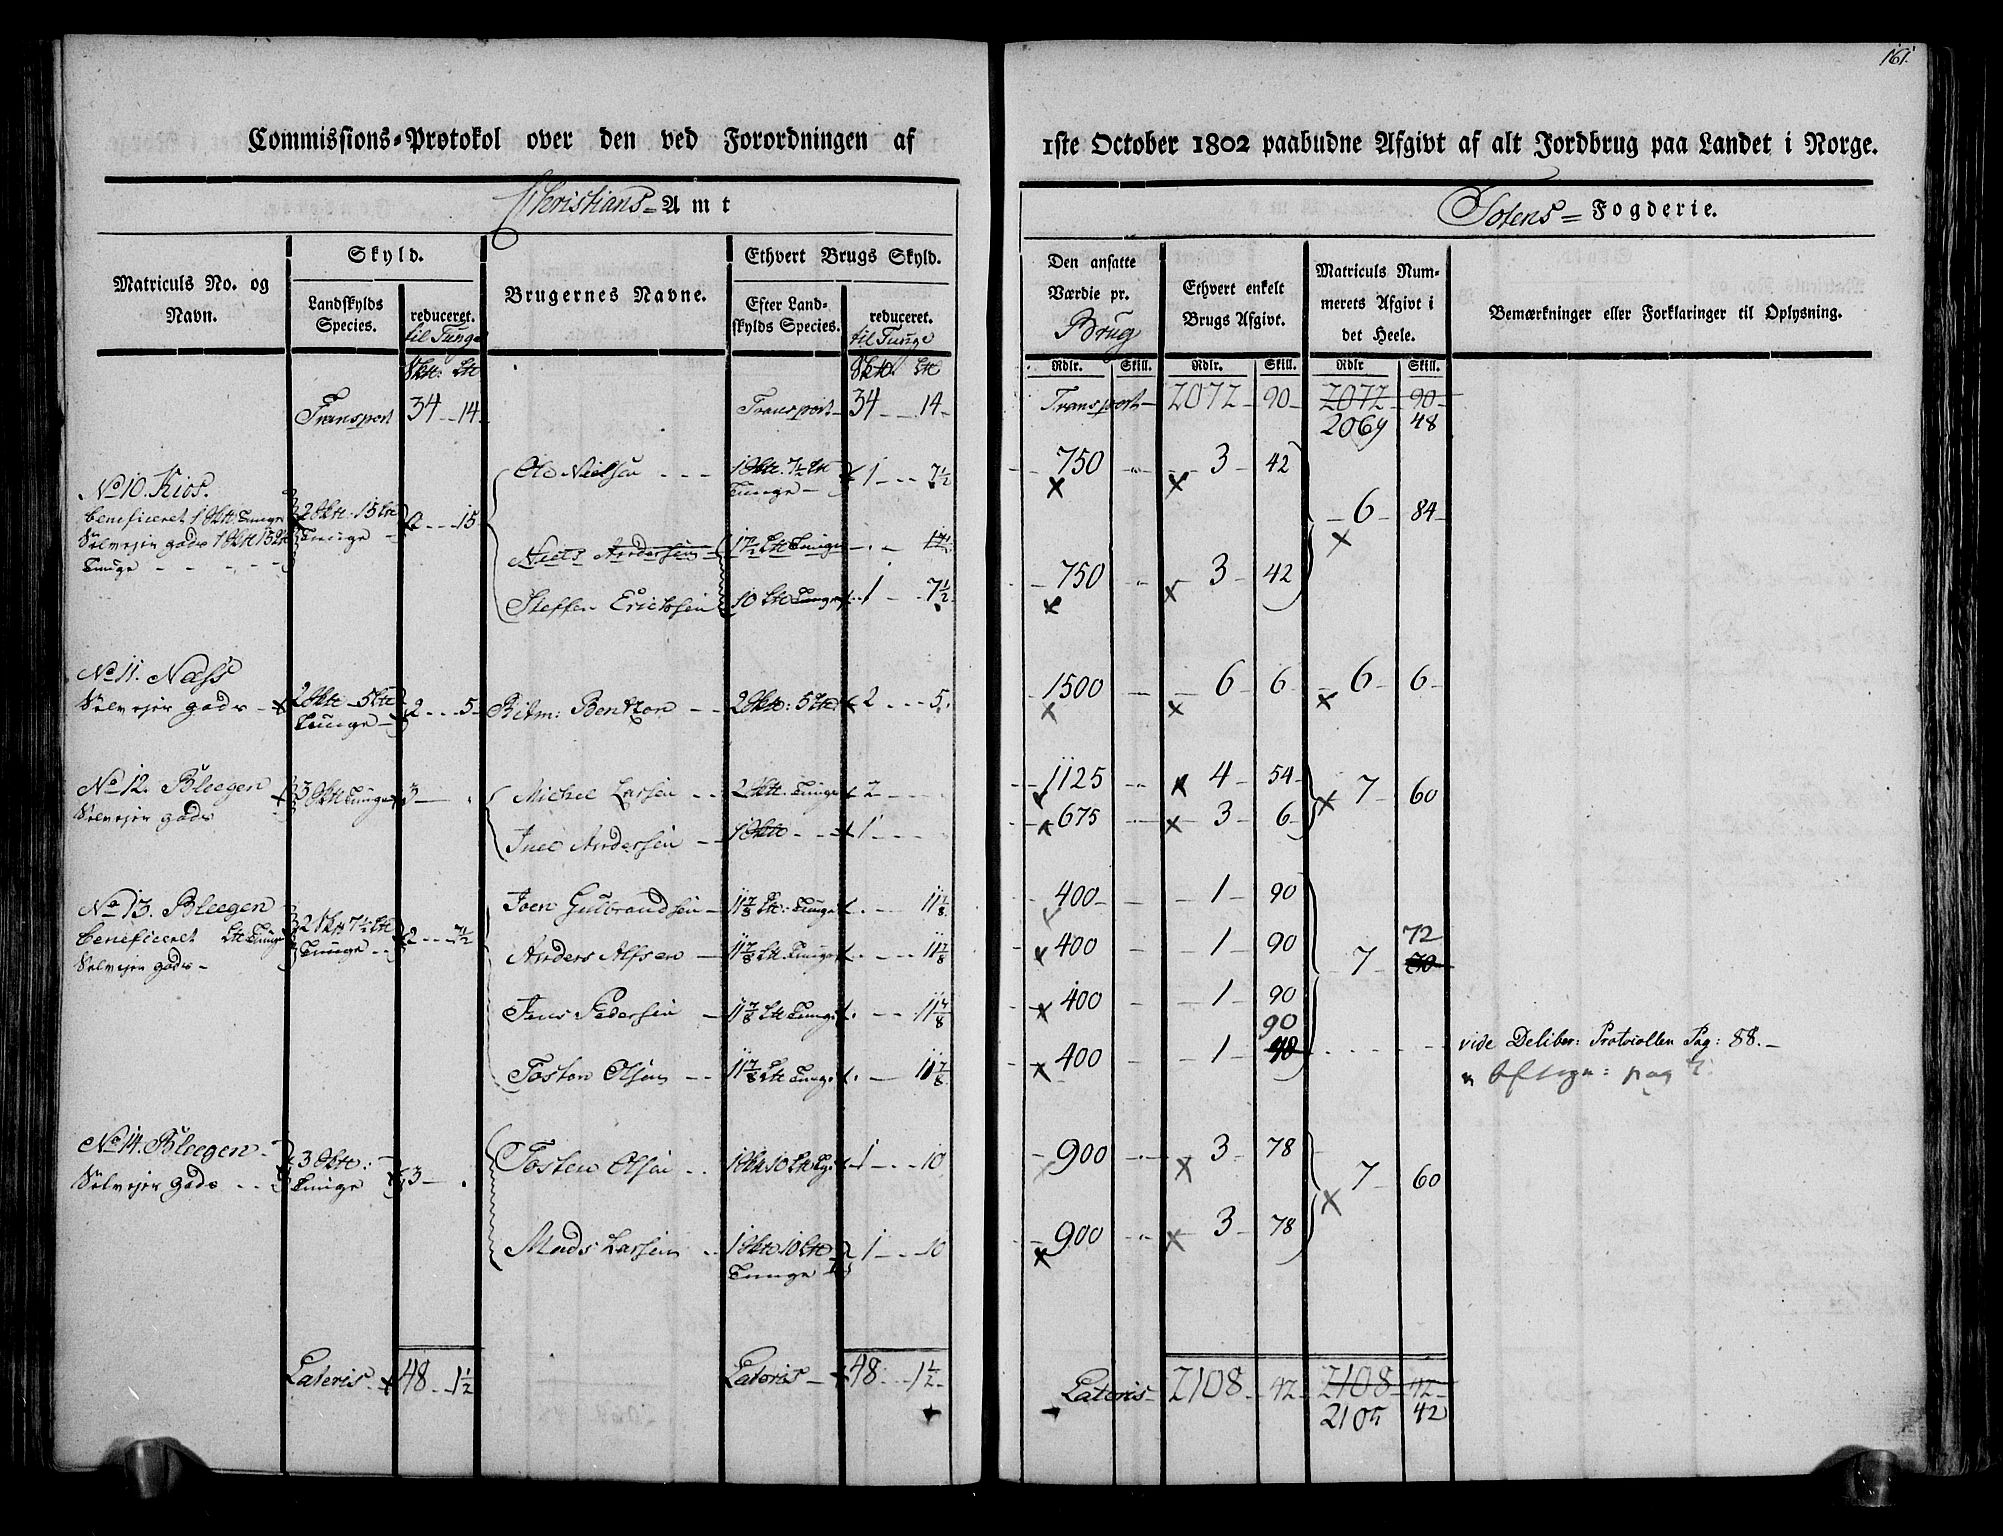 161.
Commissions-Protokol over den ved Forordningen af 1ste October 1802 paabudne Afgivt af alt Jordbrug paa Landet i Norge.
Christians=Amt
Totens= Fogderie.
Matriculs No. og Navn.
Skyld.
Landskylds Species.
reduceret.
til Tunge
Brugernes Navne.
Ethvert Brugs Skyld.
Efter Landskylds Species.
reduceret.
til Tunge
Den ansatte Værdie pr.
Brug
Ethvert enkelt Brugs Afgivt.
Matriculs Nummerets Afgivt i det Heele.
Bemærkninger eller Forklaringer til Oplysning.
Rdlr. Skill. Rdlr. Skill. Rdlr Skill.
Transport 34 14 Transport 34 14 Transport 2072 90 2072 90
2069 48
No 10. Kios.
beneficeret 1 Skt: Tunge
Selvejer gods
Tunge
2 Skt: 15 Lt
Tunge
2 15
Ole Nielsen 1 Skt: 7½ Lt Tunge 1 7½ 750 3 42
6 84
Niels Andersen 17½ Lt Tunge 17½
Steffen Ericksen 10 Lt Tunge 1 7½ 750 3 42
No 11. Næss
Selvejer gods
2 Skt 5 Lt
Tunge
2 5
Ritm: Bentzon 2 Skt: 5 Lt 2 5 1500 6 6 6 6
No 12. Bleegen
Selvejer gods
3 Skt Tunge 3
Michel Larsen 2 Skt. Tunge 2 1125 4 54
7 60
Andersen 1 Skt 1 675 3 6
No 13. Bleegen
beneficeret Lt Tunge
Selvejer gods
2 Skt 7½ Lt
Tunge
2 7½
Joen Gulbrandsen 11⅞ Lt: Tunge 11⅞ 400 1 90
Anders Alfsen 11⅞ Lt Tunge 11⅞ 400 1 90
72
7
Jens Pedersen 11⅞ Lt Tunge 11⅞ 400 1 90
90
Tosten Olsen 11⅞ Lt Tunge 11⅞ 400 1
vide Deliber: Protocollen Pag: 88.
No 14. Bleegen
Selvejer gods
3 Skt:
Tunge
3
Tosten Olsen 1 Skt 10 Lt Tge 1 10 900 3 78
7 60
Mads Larsen 1 Skt 10 Lt Tunge 1 10 900 3 78
Lateris 48 1½ Lateris 48 1½ Lateris 2108 42 2108 42
2105 42